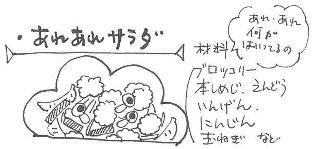 ・あれあれサラダ
あれ・あれ
何が
はいってるの
材料
ブロッコリー
本しめじ、えんどう
いんげん、
にんじん
玉ねぎ など